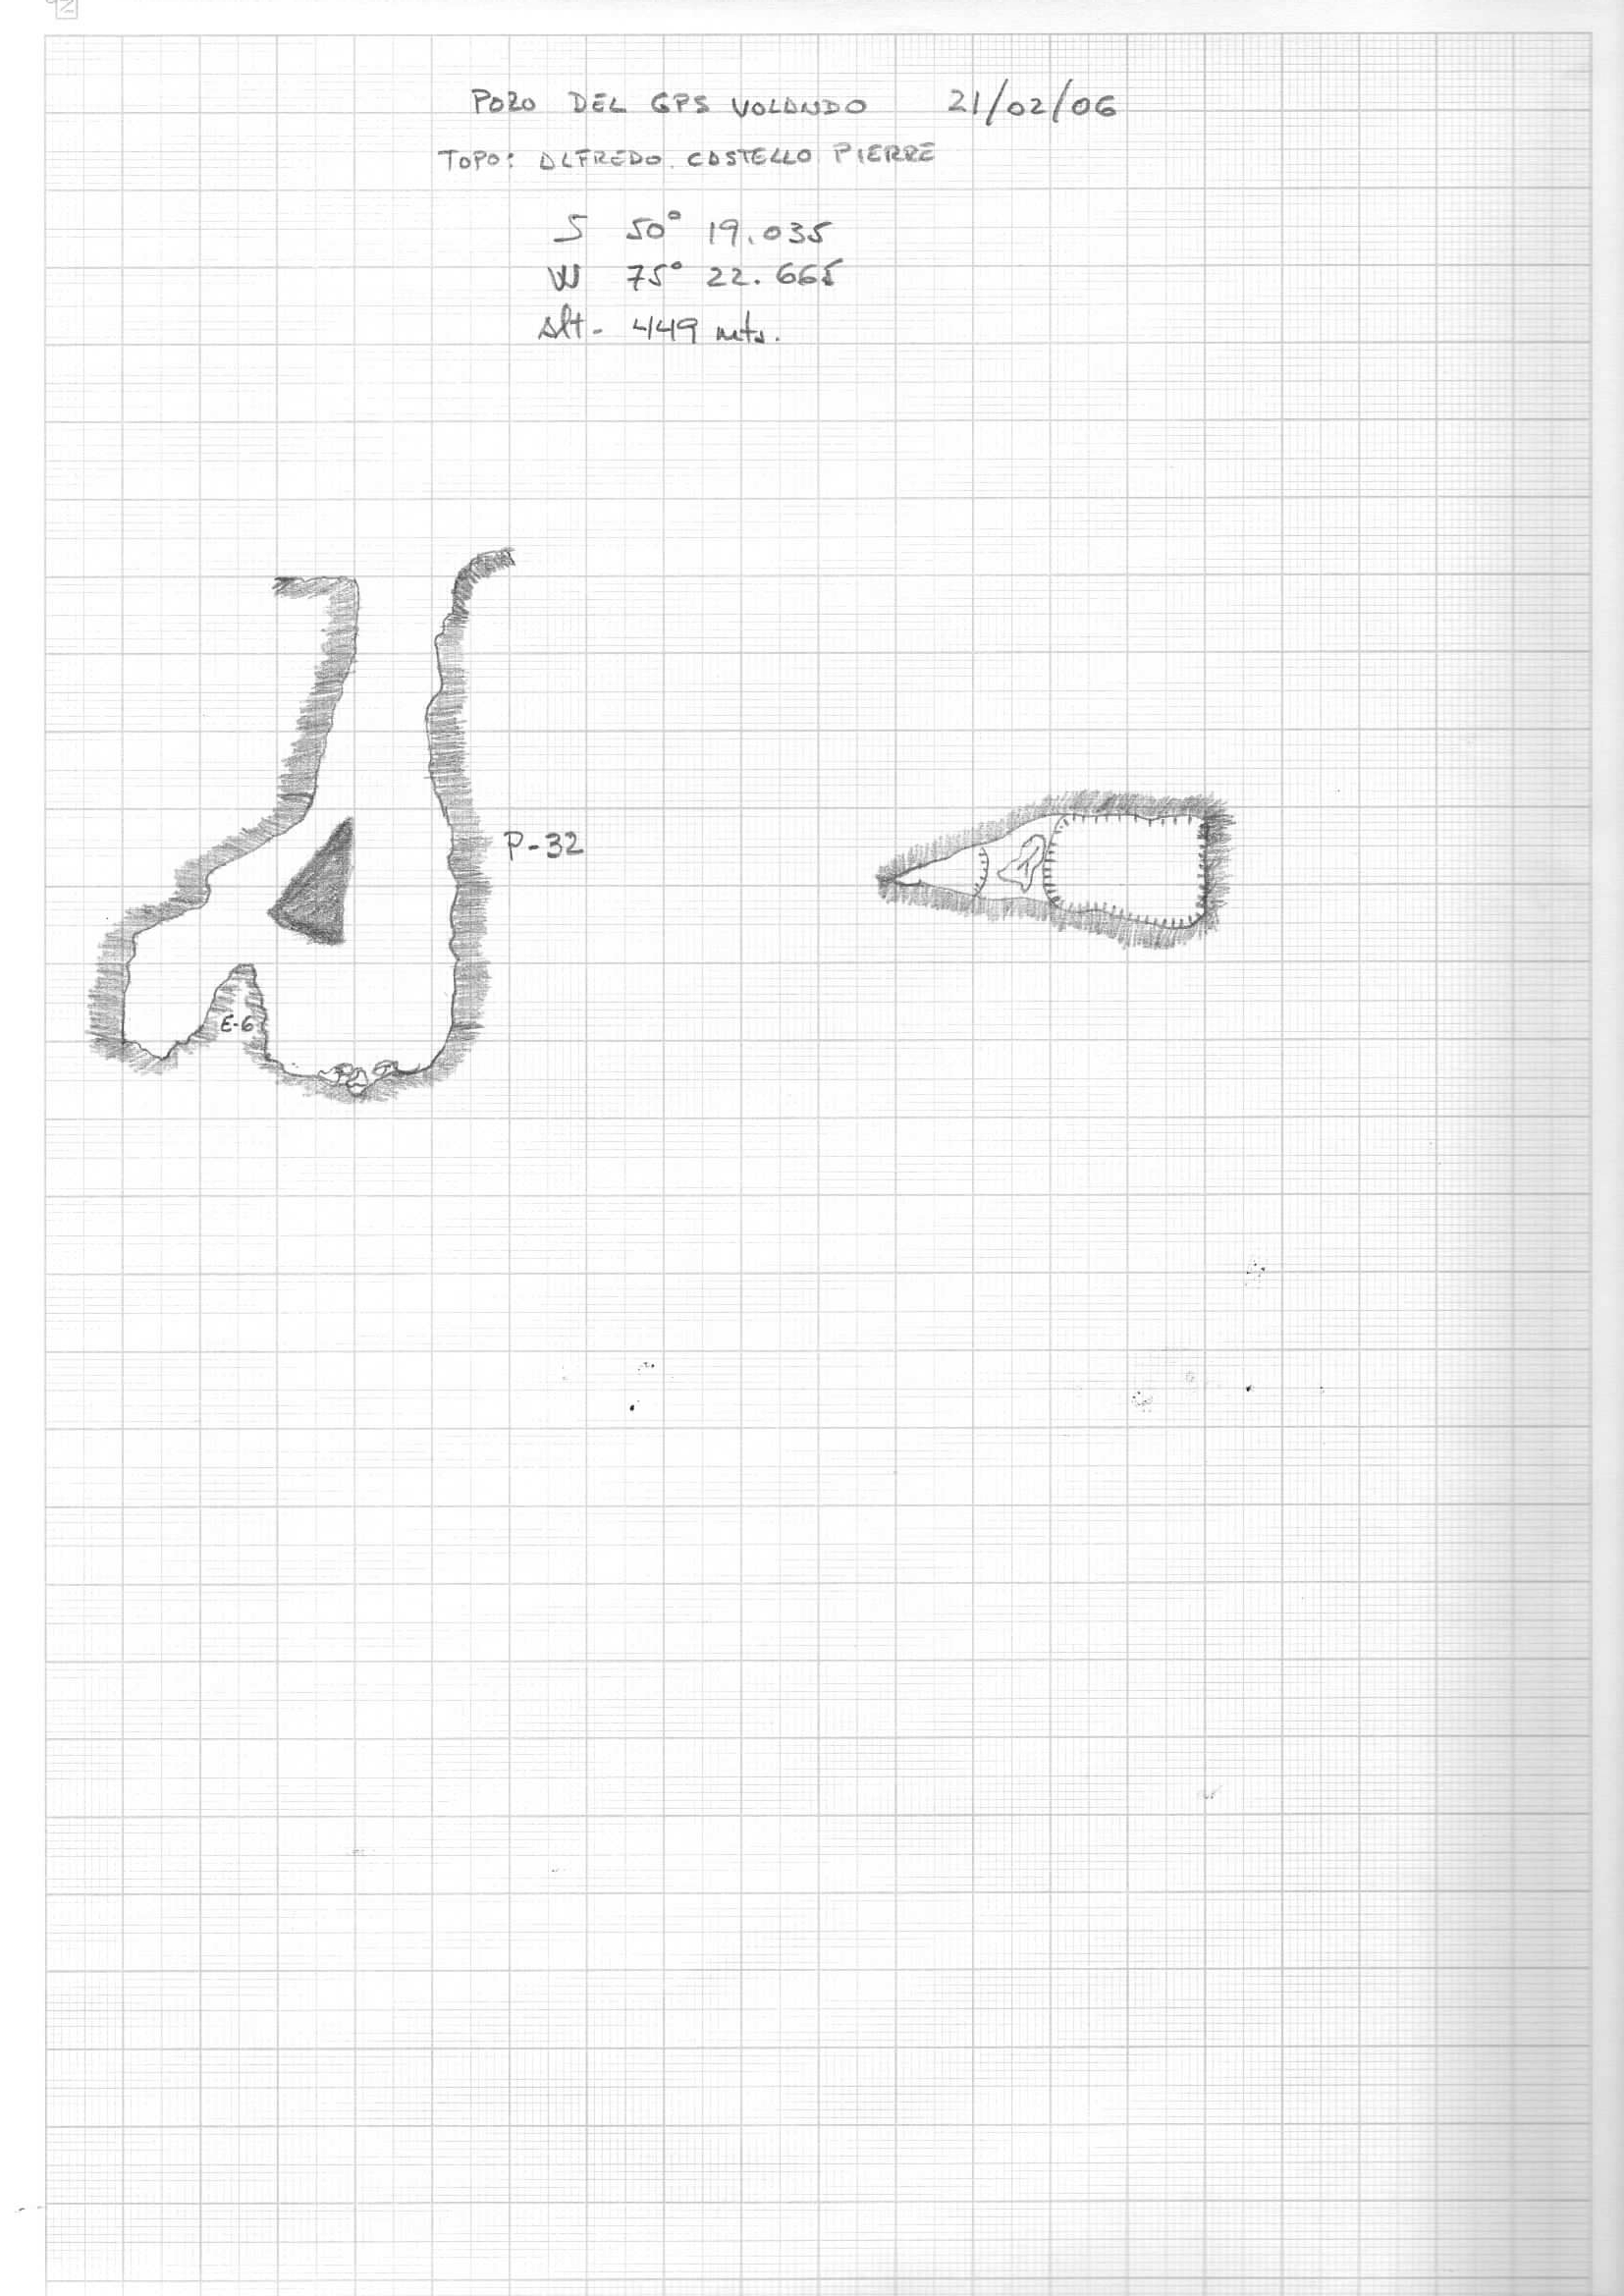 POZO DEL GPS VOLANDO 21/02/06
TOPO: ALFREDO. CASTELLO. PIERRE
S 50° 19.035
W 75° 22.665
Alt- 449 mts.
P-32
E-6